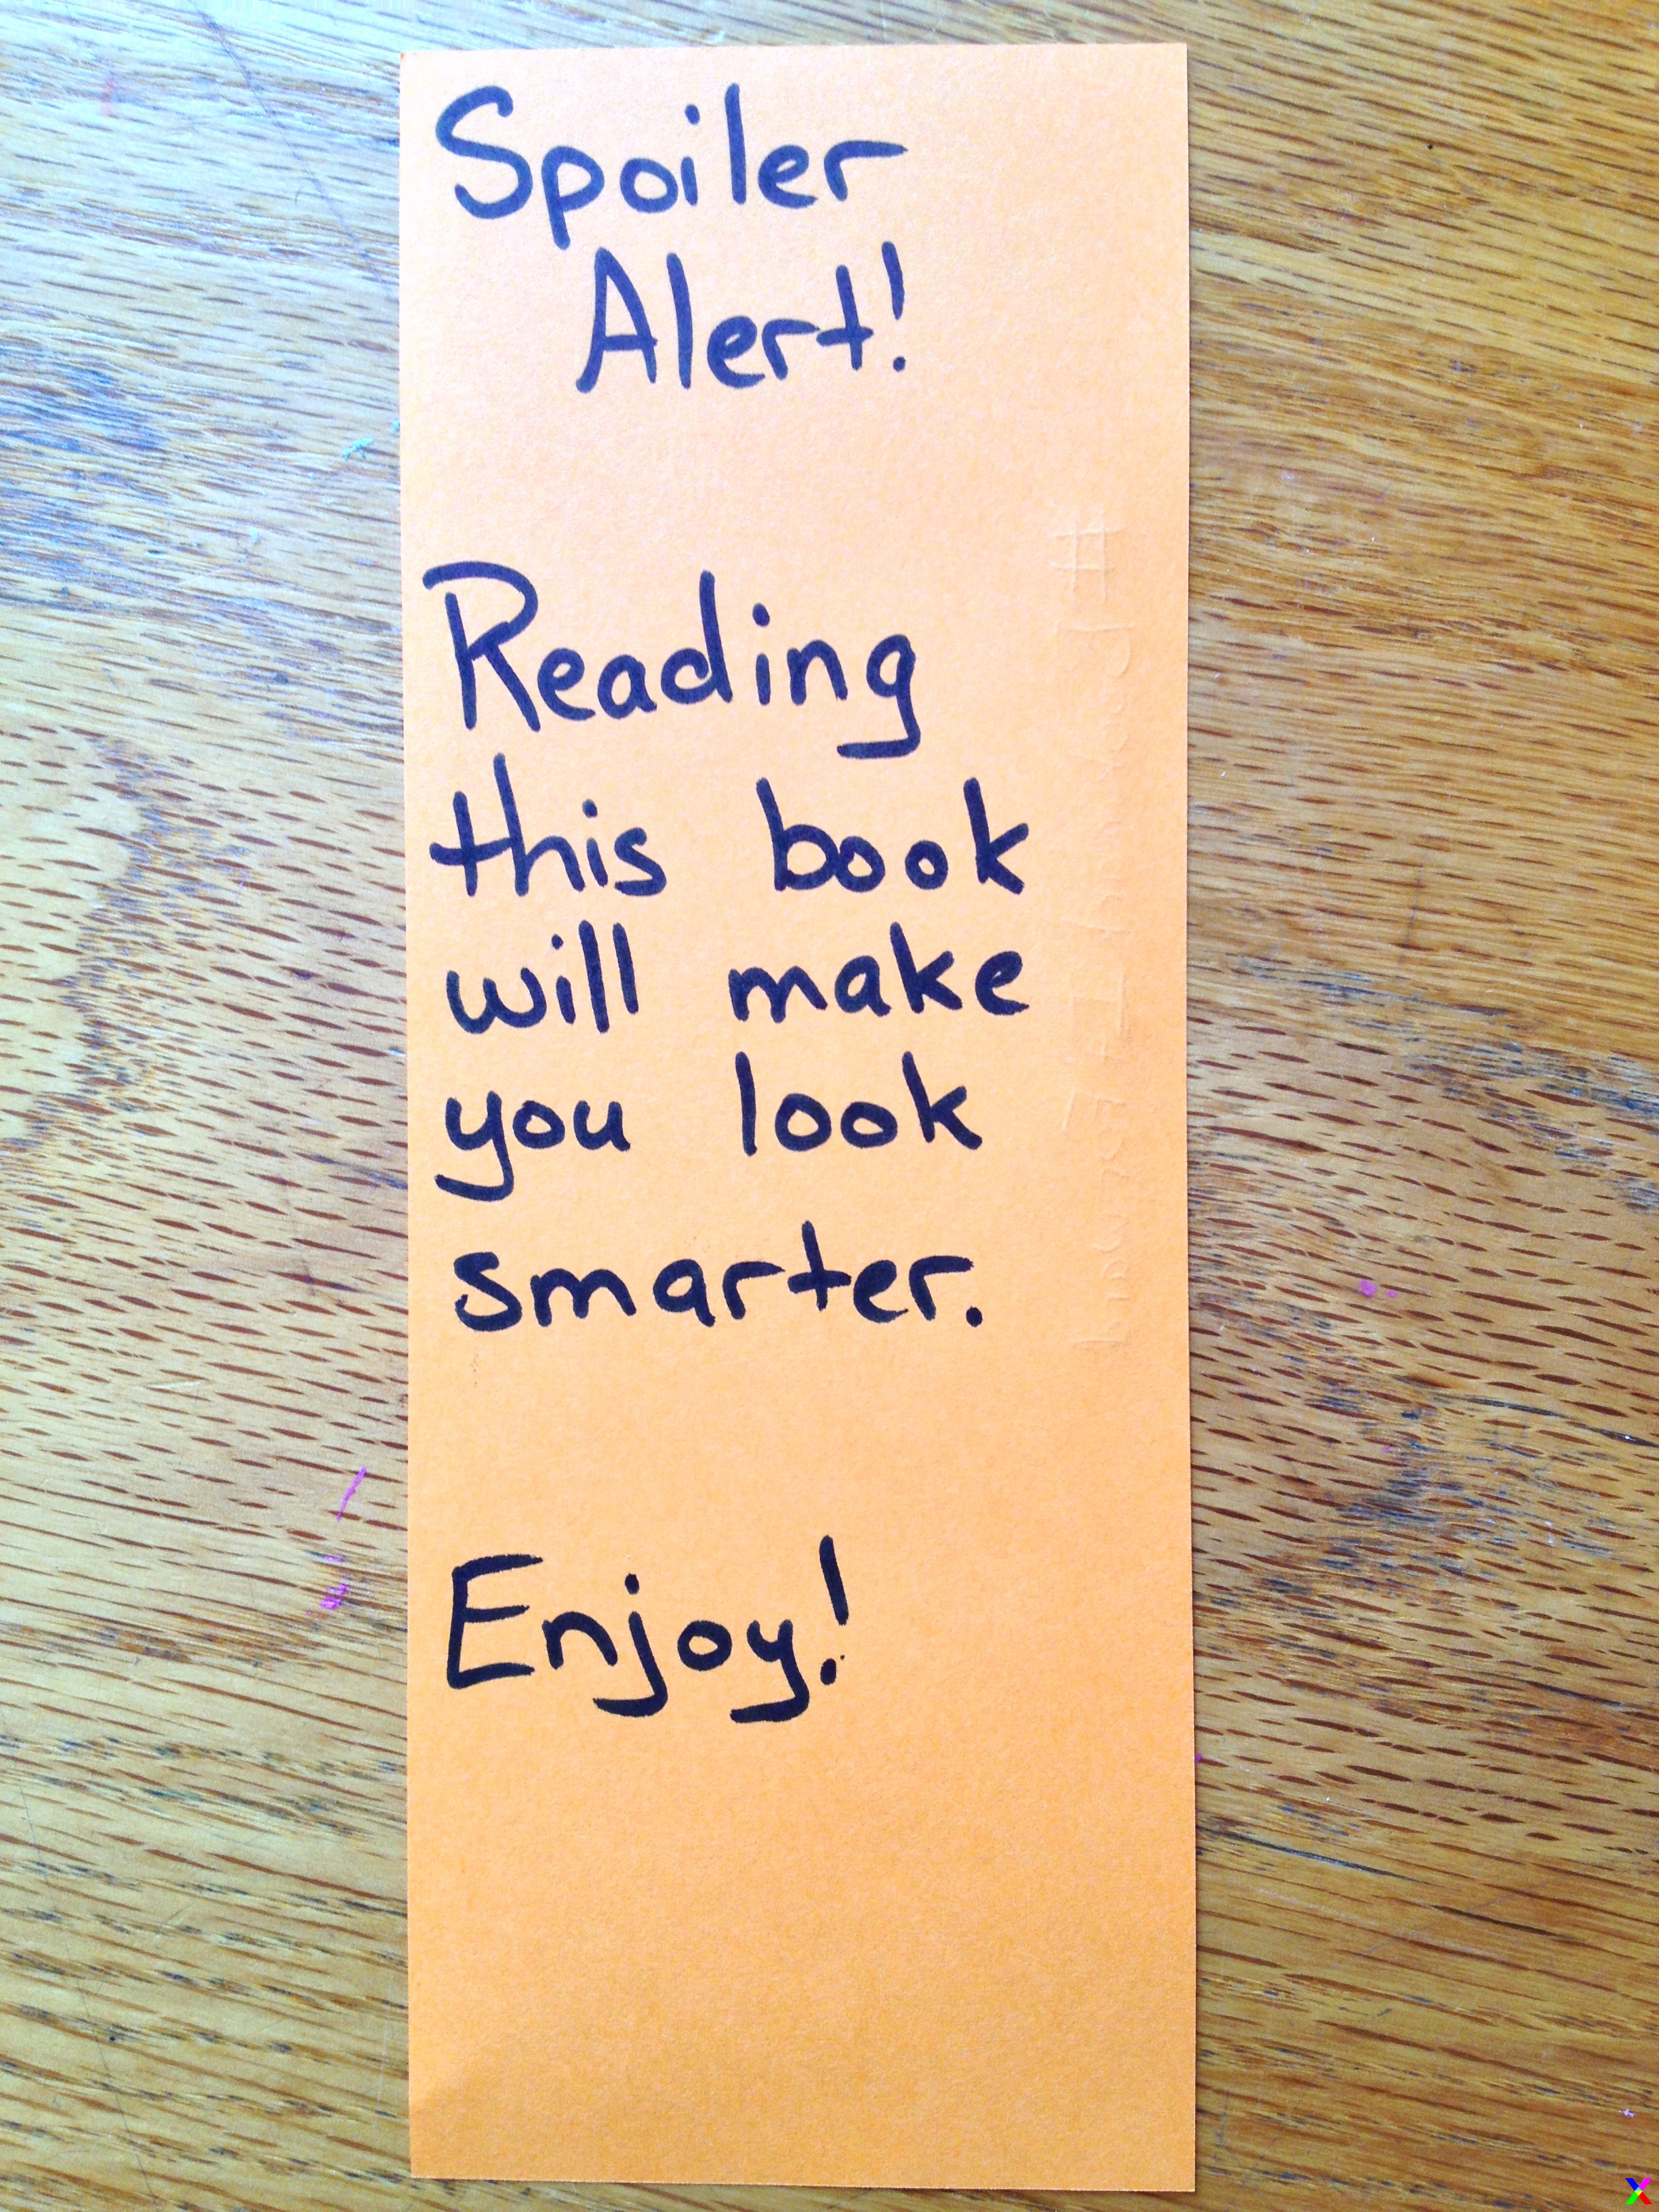 Spoiler
Alert!
Reading
this book
will make
you look
smarter.
Enjoy!